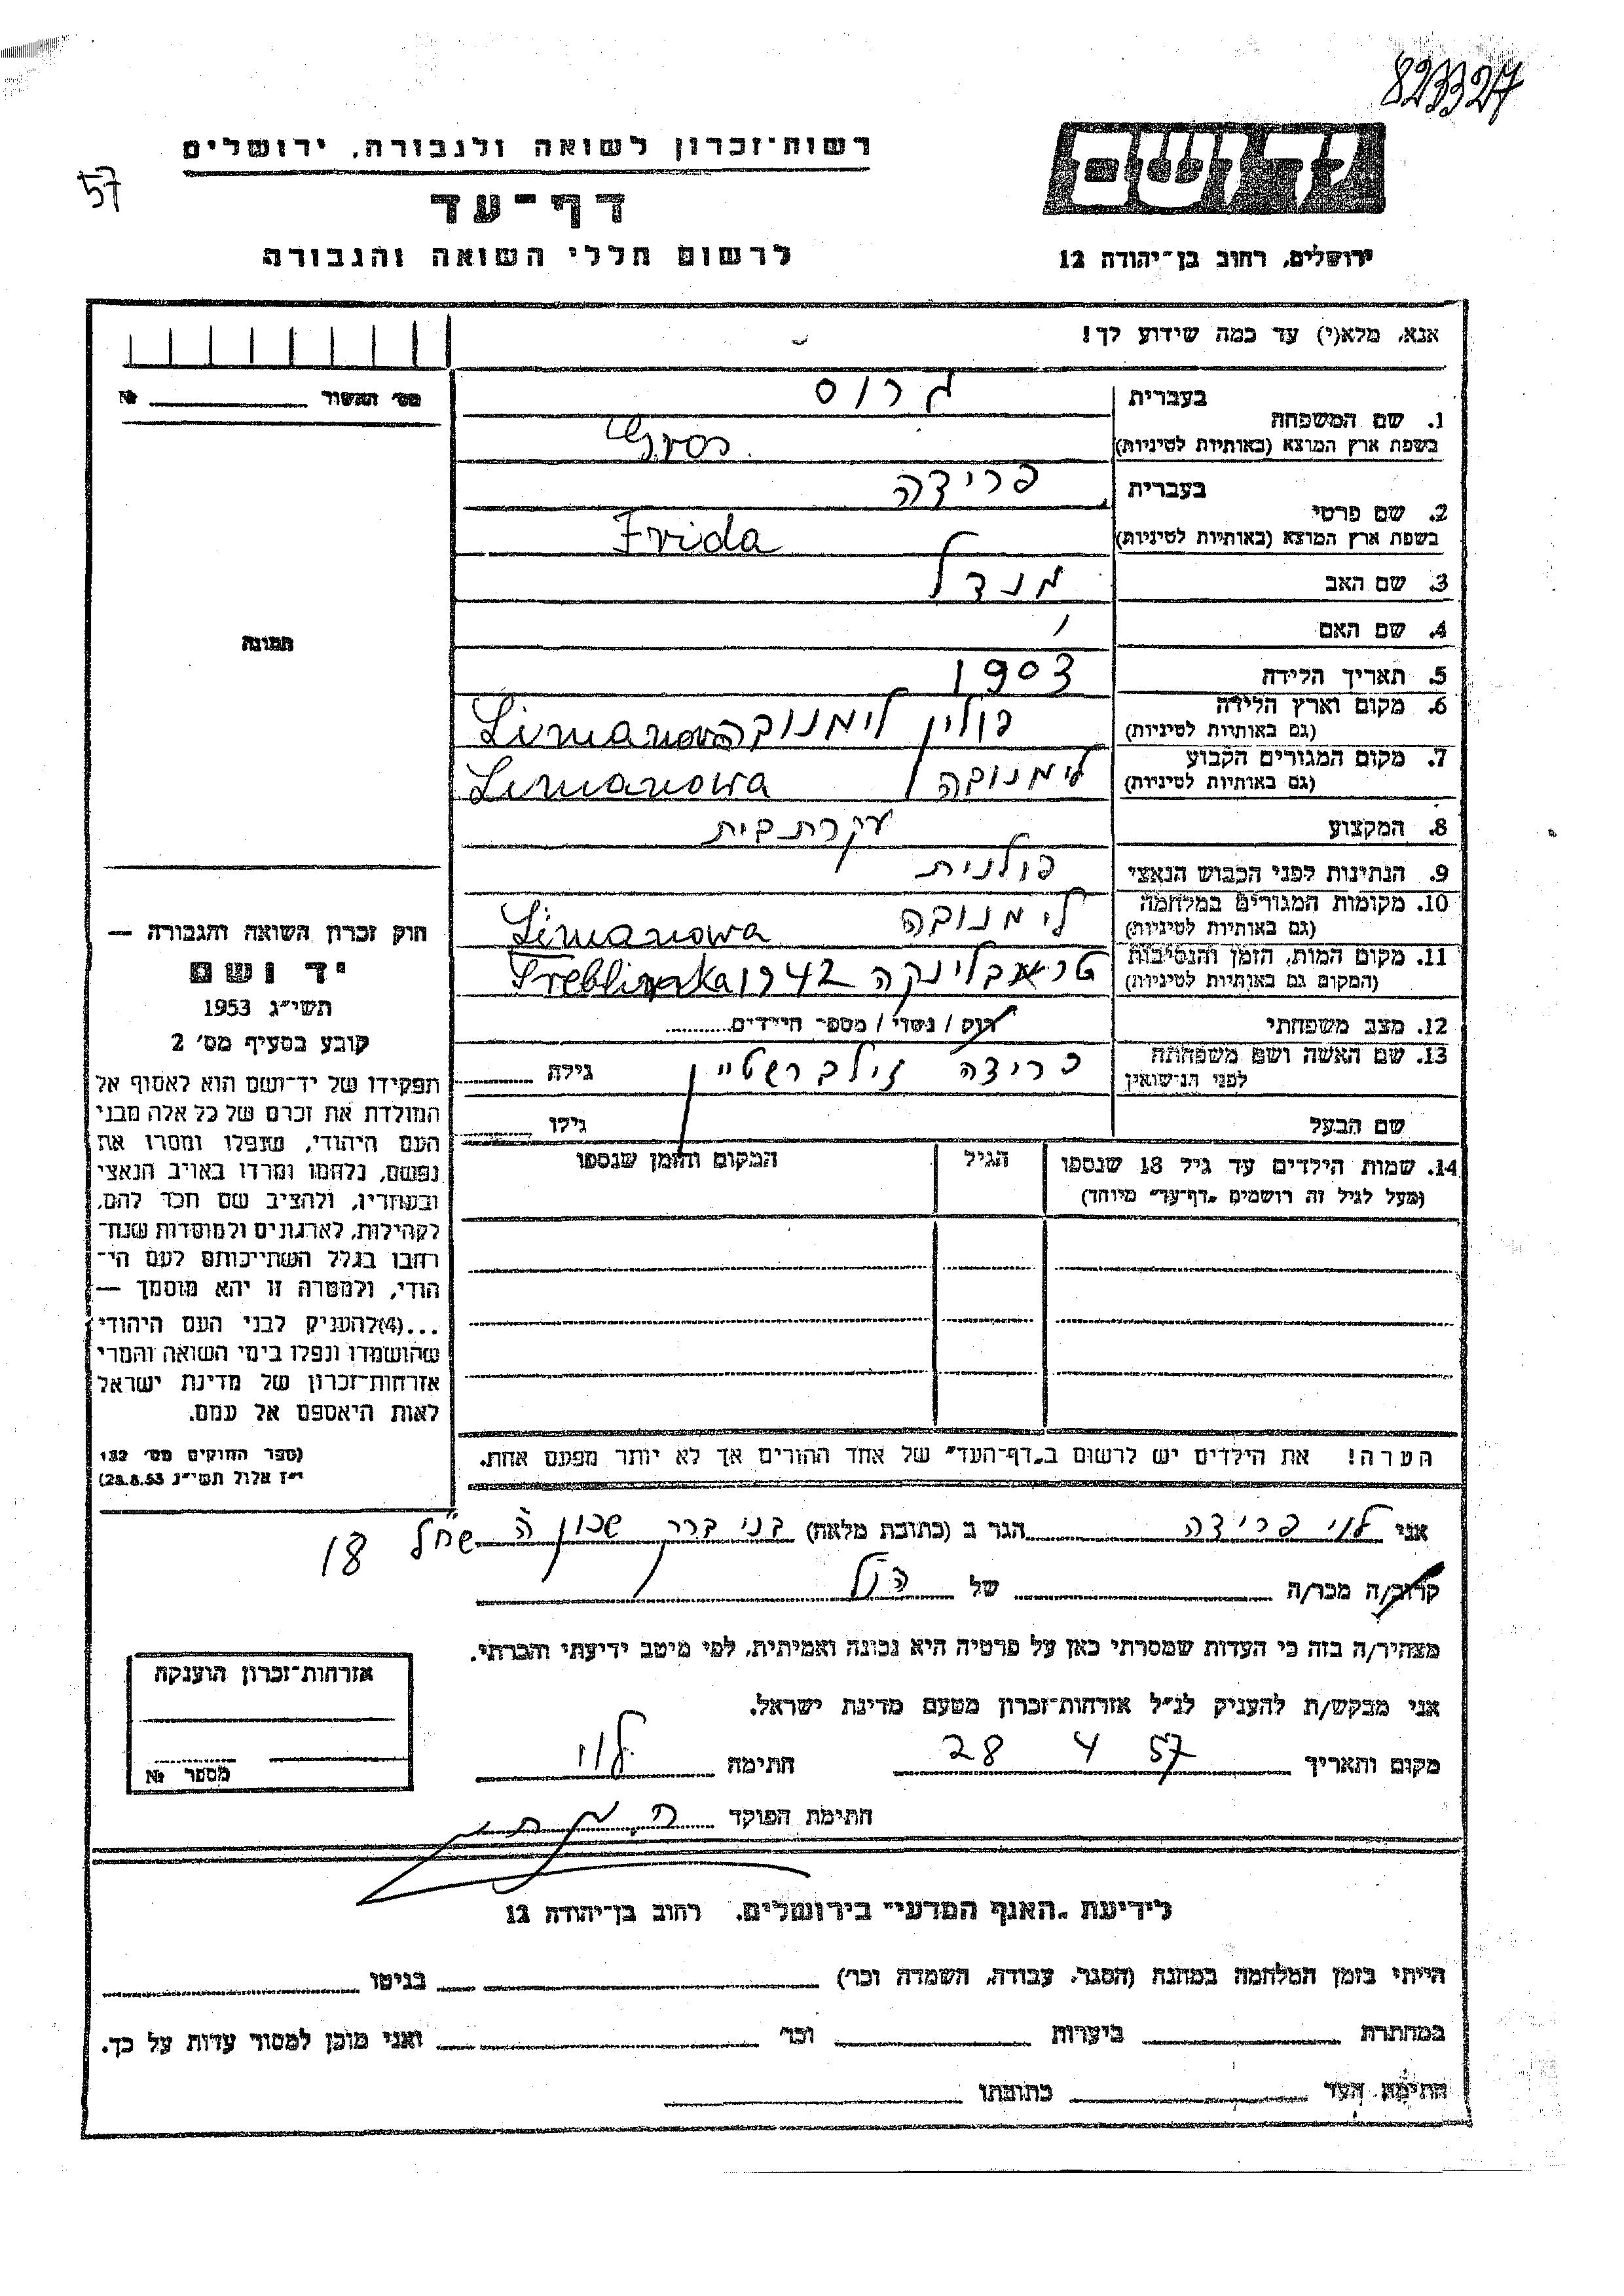 823327
57
רשות־זכרון לשואה ולגבורה, ירושלים
דף־עד
לרשום חללי השואה והגבורה
יד ושם
ירושלים, רחוב בן־יהודה 12
אנא, מלא(י) עד כמה שידוע לך!
מס' האשור № 
1. שם המשפחה בעברית גרוס
בשפת ארץ המוצא (באותיות לטיניות) Gros
2. שם פרטי בעברית פרידה
בשפת ארץ המוצא (באותיות לטיניות) Frida
3. שם האב מנדל
4. שם האם
5. תאריך הלידה 1903
6. מקום וארץ הלידה (גם באותיות לטיניות) פולין לימנובה Limanowa
7. מקום המגורים הקבוע (גם באותיות לטיניות) לימנובה Limanowa
8. המקצוע עקרת בית
9. הנתינות לפני הכבוש הנאצי פולנית
10. מקומות המגורים במלחמה (גם באותיות לטיניות) לימנובה Limanowa
11. מקום המות, הזמן והנסיבות (המקום גם באותיות לטיניות) טראבלינקה 1942 Treblinka
12. מצב משפחתי רווק / נשוי / מספר הילדים
13. שם האשה ושם משפחתה לפני הנישואין פרידה זילברשטיין גילה
שם הבעל גילו
14. שמות הילדים עד גיל 18 שנספו הגיל המקום והזמן שנספו
(מעל לגיל זה רושמים „דף־עד" מיוחד)
הערה! את הילדים יש לרשום ב„דף־העד" של אחד ההורים אך לא יותר מפעם אחת.
תמונה
חוק זכרון השואה והגבורה —
יד ושם
תשי"ג 1953
קובע בסעיף מס' 2
תפקידו של יד־ושם הוא לאסוף אל
המולדת את זכרם של כל אלה מבני
העם היהודי, שנפלו ומסרו את
נפשם, נלחמו ומרדו באויב הנאצי
ובעוזריו, ולהציב שם וזכר להם,
לקהילות, לארגונים ולמוסדות שנח־
רבו בגלל השתייכותם לעם הי־
הודי, ולמטרה זו יהא מוסמך —
...(4) להעניק לבני העם היהודי
שהושמדו ונפלו בימי השואה והמרי
אזרחות־זכרון של מדינת ישראל
לאות היאספם אל עמם.
(ספר החוקים מס' 132
י"ז אלול תשי"ג 28.8.53)
אני לוי פרידה הגר ב (כתובת מלאה) בני ברק שכון ה 18
קרוב/ה מכר/ה של הנ"ל
מצהיר/ה בזה כי העדות שמסרתי כאן על פרטיה היא נכונה ואמיתית, לפי מיטב ידיעתי והכרתי.
אני מבקש/ת להעניק לנ"ל אזרחות־זכרון מטעם מדינת ישראל.
מקום ותאריך 28 4 57 חתימה לוי
חתימת הפוקד
אזרחות־זכרון הוענקה
מספר №
לידיעת „האגף המדעי" בירושלים. רחוב בן־יהודה 12
הייתי בזמן המלחמה במחנה (הסגר, עבודה, השמדה וכו') בגיטו
במחתרת ביערות וכו' ואני מוכן למסור עדות על כך.
חתימת העד כתובתו